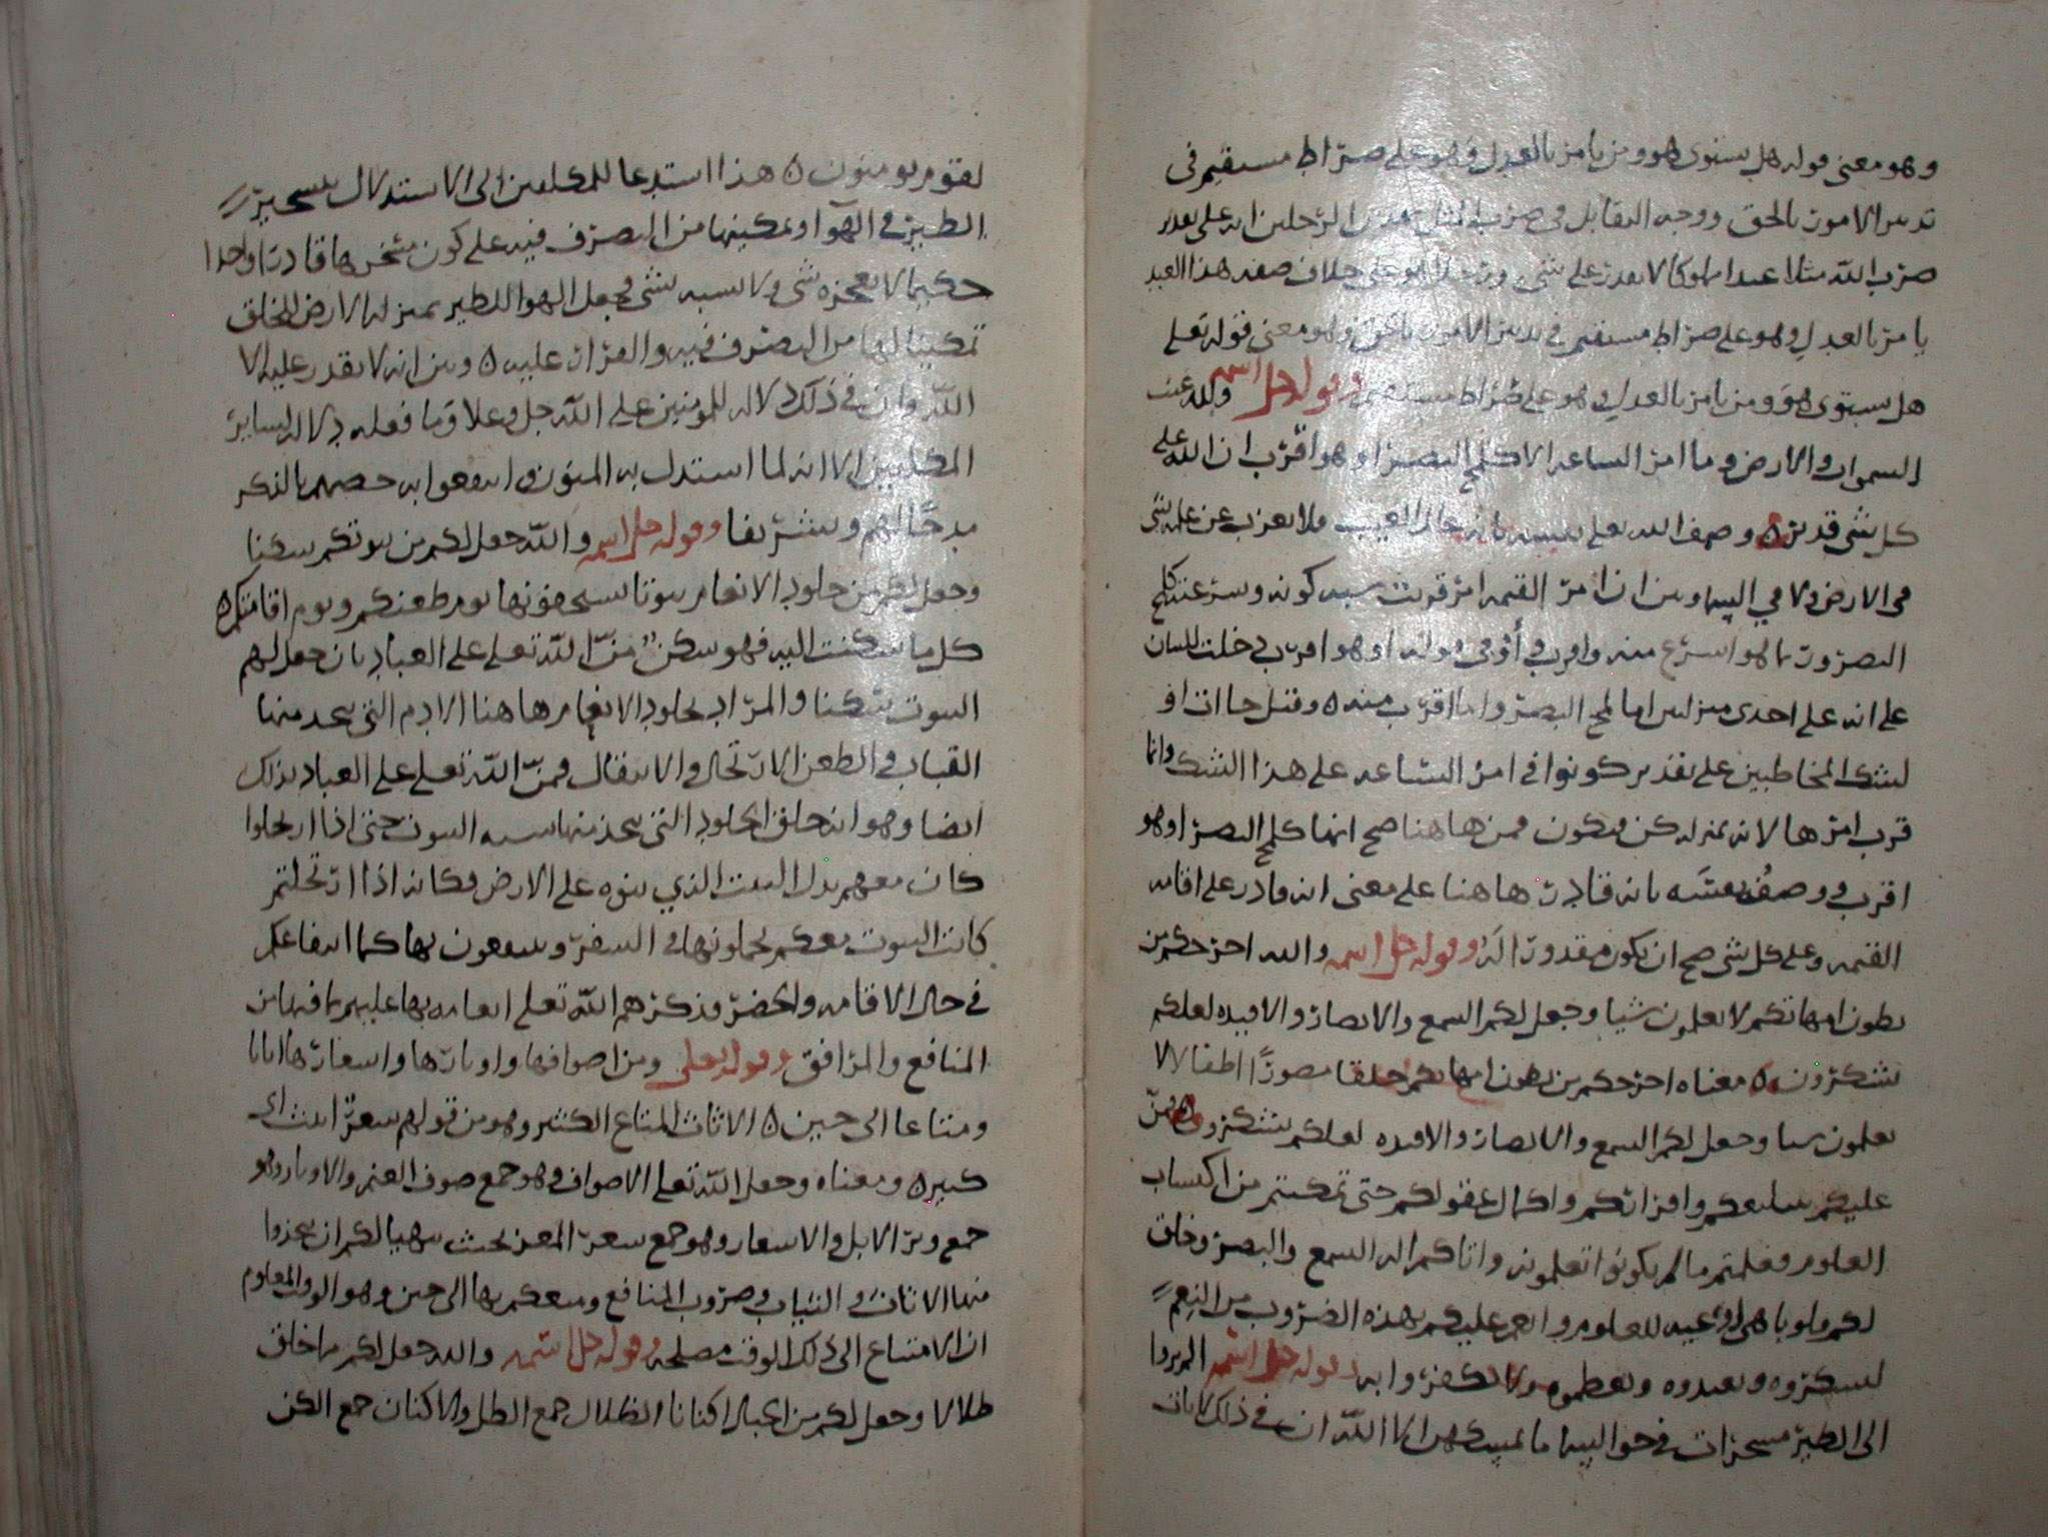 وهو معنى قوله هل يستوى هو ومن يامر بالعدل وهو على صراط مستقيم فى
تدبير الامور بالحق ووجه التقابل فى ضرب المثل بهذين الرجلين انه على تقدير
ضرب الله مثلا عبدا مملوكا لا يقدر على شى ورجلا هو على خلاف صفه هذا العبد
يامر بالعدل وهو على صراط مستقيم فى تدبير الامور بالحق وهو معنى قوله تعلى
هل يستوى هو ومن يامر بالعدل وهو على صراط مستقيم وقوله جل اسمه ولله غيب
السموات والارض وما امر الساعه الا كلمح البصر او هو اقرب ان الله على
كل شى قدير ٥ وصف الله تعلى نفسه بانه عالم الغيب ولا يعزب عن علمه شى
فى الارض ولا فى السما وبين ان امر القيمه امر قريب كونه وسرعته كلمح
البصر وربما هو اسرع منه واقرب و أو فى قوله او هو اقرب دخلت للبيان
على انه على احدى منزلتين اما لمح البصر واما اقرب منه ٥ وقيل جاات او
لشك المخاطبين على تقدير كونوا فى امر الساعه على هذا الشك وانما
قرب امرها لانه بمنزله كن فيكون فمن هاهنا صح انها كلمح البصر او هو
اقرب ووصف نفسه بانه قادر هاهنا على معنى انه قادر على اقامه
القيمه وعلى كل شى صح ان يكون مقدورا له وقوله جل اسمه والله اخرجكم من
بطون امهاتكم لا تعلمون شيا وجعل لكم السمع والابصار والافيده لعلكم
تشكرون ٥ معناه اخرجكم من بطون امهاتكم خلقا مصورا اطفالا لا
تعلمون شيا وجعل لكم السمع والابصار والافيده لعلكم تشكرون ٥ فمن
عليكم واكمال عقولكم حتى تمكنتم من اكتساب
العلوم فعلمتم ما لم تكونوا تعلمونه واتاكم اله السمع والبصر وخلق
لكم قلوبا هى اوعيه للعلوم وانعم عليكم بهذه الضروب من النعم
لتشكروه وتعبدوه وتعظموه ولا وقوله جل اسمه الم يروا
الى الطير مسخرات فى جو السما ما يمسكهن الا الله ان فى ذلك لايات
لقوم يومنون ٥ هذا استدعا للمكلفين الى الاستدلال بتسخير
الطير فى الهوا وتمكينها من التصرف فيه على كون مسخرها قادرا واحدا
حكيما لا يعجزه شى ولا يشبه شى وجعل الهوا للطير بمنزله الارض للخلق
تمكينا لها من التصرف فيه والقرار عليه ٥ وبين انه لا يقدر عليه الا
الله وان فى ذلك دلاله للمومنين على الله جل وعلا وما فعله دلاله لساير
المكلفين الا انه لما استدل به المومنون وانتفعوا به خصهم بالذكر
مدحا لهم وتشريفا وقوله جل اسمه والله جعل لكم من بيوتكم سكنا
وجعل لكم من جلود الانعام بيوتا تستخفونها يوم ظعنكم ويوم اقامتكم ٥
كل ما سكنت اليه فهو سكن منّ الله تعلى على العباد بان جعل لهم
البيوت سكنا والمراد بجلود الانعام هاهنا الادم التى يتخذ منها
القباب والظعن الارتحال والانتقال فمنّ الله تعلى على العباد بذلك
ايضا وهو انه خلق الجلود التى يتخذ منها شبه البيوت حتى اذا ارتحلوا
كان معهم بدل البيت الذي بنوه على الارض فكانه اذا ارتحلتم
كانت البيوت معكم تحملونها فى السفر وتنتفعون بها كما انتفاعكم
فى حال الاقامه والحضر فذكرهم الله تعلى انعامه بها عليهم بما فيها من
المنافع والمرافق وقوله تعلى ومن اصوافها واوبارها واشعارها اثاثا
ومتاعا الى حين ٥ الاثاث المتاع الكثير وهو من قولهم شعر اثيث اى
كثير ٥ ومعناه وجعل الله تعلى الاصواف وهو جمع صوف الغنم والاوبار وهو
جمع وبر الابل والاشعار وهو جمع شعر المعز بحيث يتهيا لكم ان تتخذوا
منها الاثاث والثياب وضروب المنافع ومتعكم بها الى حين وهو الوقت المعلوم
ان الامتاع الى ذلك الوقت مصلحه وقوله جل اسمه والله جعل لكم مما خلق
ظلالا وجعل لكم من الجبال اكنانا الظلال جمع الظل والاكنان جمع الكن